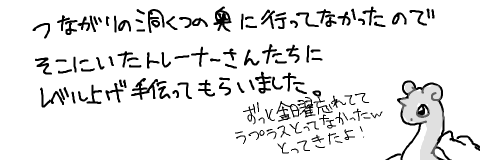 つながりの洞くつの奥に行ってなかったので
そこにいたトレーナーさんたちに
レベル上げ手伝ってもらいました。
ずっと金曜忘れてて
ラプラスとってなかったw
とってきたよ!